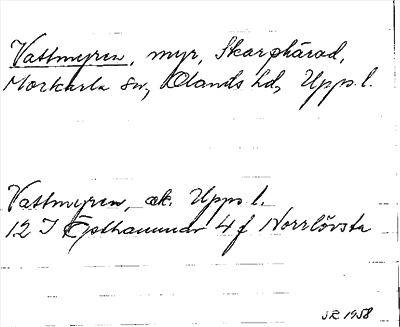 Vattmyren, myr, Skarphärad,
Morkarla sn, Olands hd, Upps. l.
Vattmyren, ek. Upps. l.
12 I Östhammar 4 f Norrlövsta
SR 1958